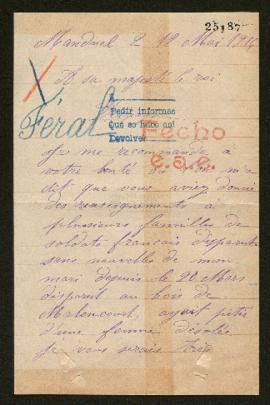 25187
Manduel le 18 Mai 1916
A sa majesté le roi
Féral
Pedir informes
Que se hizo así
Devolver
Fecho
Je me recommande à
votre bonté on m'a
dit que vous aviez donné
des renseignements à
plusieurs familles de
soldats français disparus
sans nouvelle de mon
mari depuis le 20 Mars
disparut au bois de
Malencourt, ayait pitié
d'une femme désolée
je vous serais très